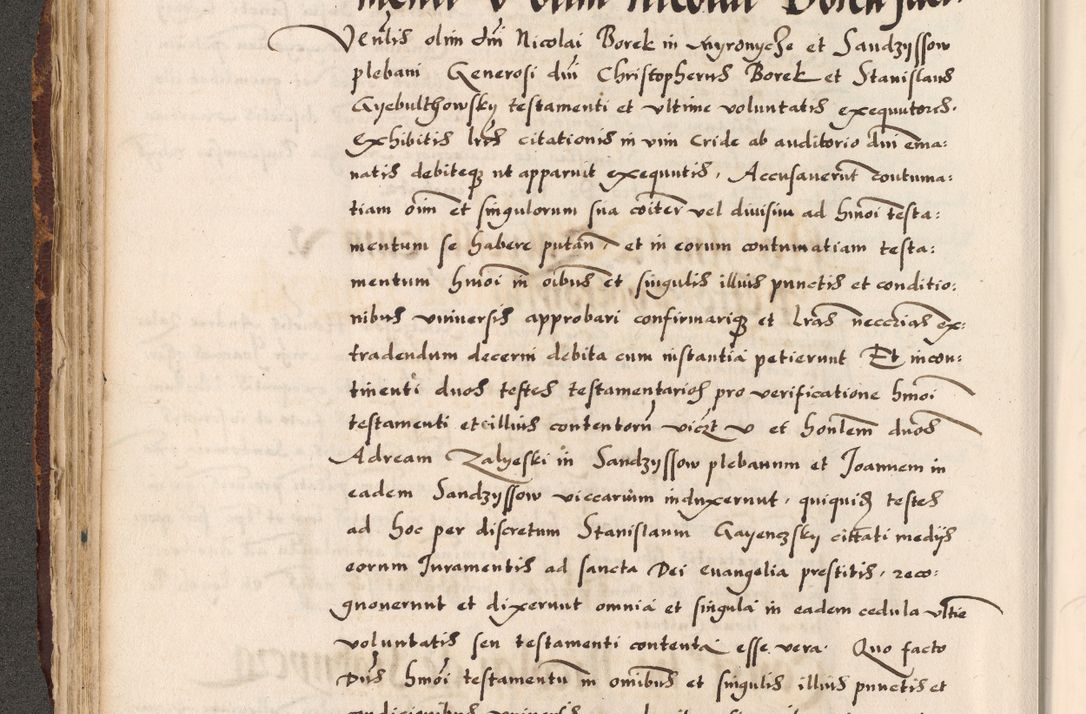 Venlis olim dni Nicolai Borek in Myronycze et Sandzyssow
plebani Generosi dni Christopherus Borek et Stanislaus
Gyebulthowsky testamenti et ultime voluntatis exequutores.
Exhibitis lras citationis in vim Cride ab auditorio dni ema:
natis debiteqz ut apparuit exequutis, Accusaverunt contuma:
tiam oim et singulorum sua coiter vel divisim ad hmoi testa:
mentum se habere putan, et in eorum contumatiam testa:
mentum hmoi in oibus et singulis illius punctis et conditio:
nibus universis approbari confirmariqz et lras neccrias ex:
tradendum decerni debita cum instantia petierunt Et incon:
tinenti duos testes testamentarios pro verificatione hmoi
testamenti et illius contentoru viczt v et honlem duos
Adream Zalyeski in Sandzyssow plebanum et Joannem in
eadem Sandzyssow viccarium induxerunt, quiquid testes
ad hoc per discretum Stanislaum Gayenczsky cittati medijs
eorum Juramentis ad sancta Dei evangelia prestitis, reco:
gnoverunt et dixerunt omnia et singula in eadem cedula ultie
voluntatis seu testamenti contenta esse vera. Quo facto
Dns hmoi testamentum in omibus et singulis illius punctis et